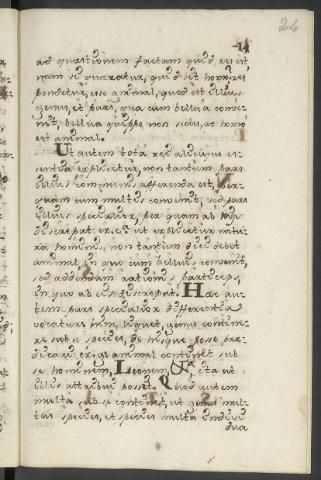 24
14
ad quæstionem factam quid rei sit
nam si quæratur, quid sit homo, res
pondetur, esse animal, quod est illius
genus, et pars, qua cum bellua conve-
nit, bellua quippe non secus, ac homo
est animal.
Ut autem tota res alicuius es-
sentia explicetur, non tantum pars
illius communis afferenda est, per
quam cum multis convenit, sed pars
illius specialior, per quam ab illis
discrepat: ex. gr. ut explicetur natu-
ra hominis, non tantum dici debet
animal in quo cum belluis convenit,
sed addendum rationis particeps,
in quo ab eis discrepat. Hæc au-
tem pars specialior differentia
vocatur: hinc liquet, genus contine-
re sub se species, de hisque posse præ-
dicari: ex. gr. animal continet sub
se hominem, Leonem, &a, ita ut
illis attribui possit. Quod autem
multa sub se continet, ut genus mul-
tas species, et species multa indivi-
dua